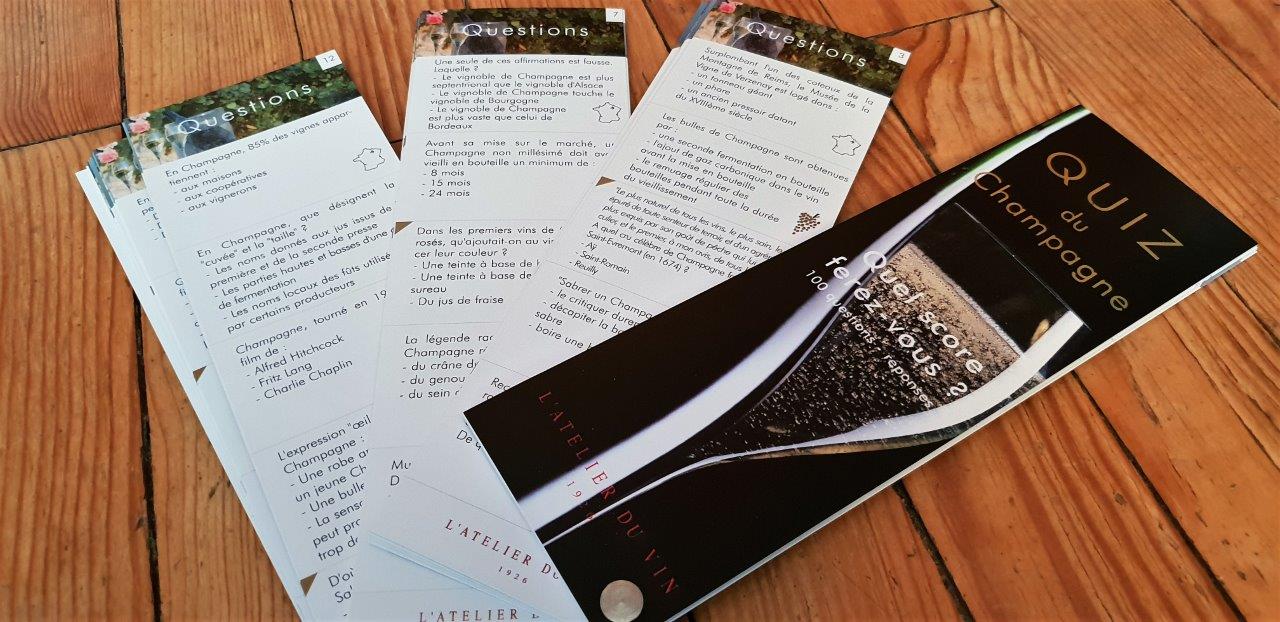 12
Questions
En Champagne, 85% des vignes appar-
tiennent :
- aux maisons
- aux coopératives
- aux vignerons
En Champagne, que désignent la
"cuvée" et la "taille" ?
- Les noms donnés aux jus issus de
première et de la seconde presse
- Les parties hautes et basses d'une
de fermentation
- Les noms locaux des fûts utilisé
par certains producteurs
Champagne, tourné en 19
film de :
- Alfred Hitchcock
- Fritz Lang
- Charlie Chaplin
L'expression "œil
Champagne :
- Une robe
un jeune Ch
- Une bulle
- La sens
peut pro
trop de
D'où
Sa
7
Questions
Une seule de ces affirmations est fausse.
Laquelle ?
- Le vignoble de Champagne est plus
septentrional que le vignoble d'Alsace
- Le vignoble de Champagne touche le
vignoble de Bourgogne
- Le vignoble de Champagne
est plus vaste que celui de
Bordeaux
Avant sa mise sur le marché, u
Champagne non millésimé doit avo
vieilli en bouteille un minimum de :
- 8 mois
- 15 mois
- 24 mois
Dans les premiers vins de
rosés, qu'ajoutait-on au vin
cer leur couleur ?
- Une teinte à base de
- Une teinte à base de
sureau
- Du jus de fraise
La légende rac
Champagne
- du crâne d
- du genou
- du sein
Mu
D
L'ATELIER DU
1926
L'ATELIER DU VIN
3
Questions
Surplombant l'un des coteaux de la
Montagne de Reims, le Musée de la
Vigne de Verzenay est logé dans :
- un tonneau géant
- un phare
- un ancien pressoir datant
du XVIIIème siècle
Les bulles de Champagne sont obtenues
par :
- une seconde fermentation en bouteille
- l'ajout de gaz carbonique dans le vin
avant la mise en bouteille
- le remuage régulier des
bouteilles pendant toute la durée
du vieillissement
"Le plus naturel de tous les vins, le plus sain, le
épuré de toute senteur de terroir, et d'un agré
plus exquis par son goût de pêche qui l
culier, et le premier, à mon avis, de tous l
A quel cru célèbre de Champagne
Saint-Evremont (en 1674) ?
- Aÿ
- Saint-Romain
- Reuilly
"Sabrer un Champa
- le critiquer dure
- décapiter la bo
sabre
- boire une
Rec
De
QUIZ
du
Champagne
Quel score
ferez-vous ?
100 questions - réponses
L'ATELIER DU VIN
1926